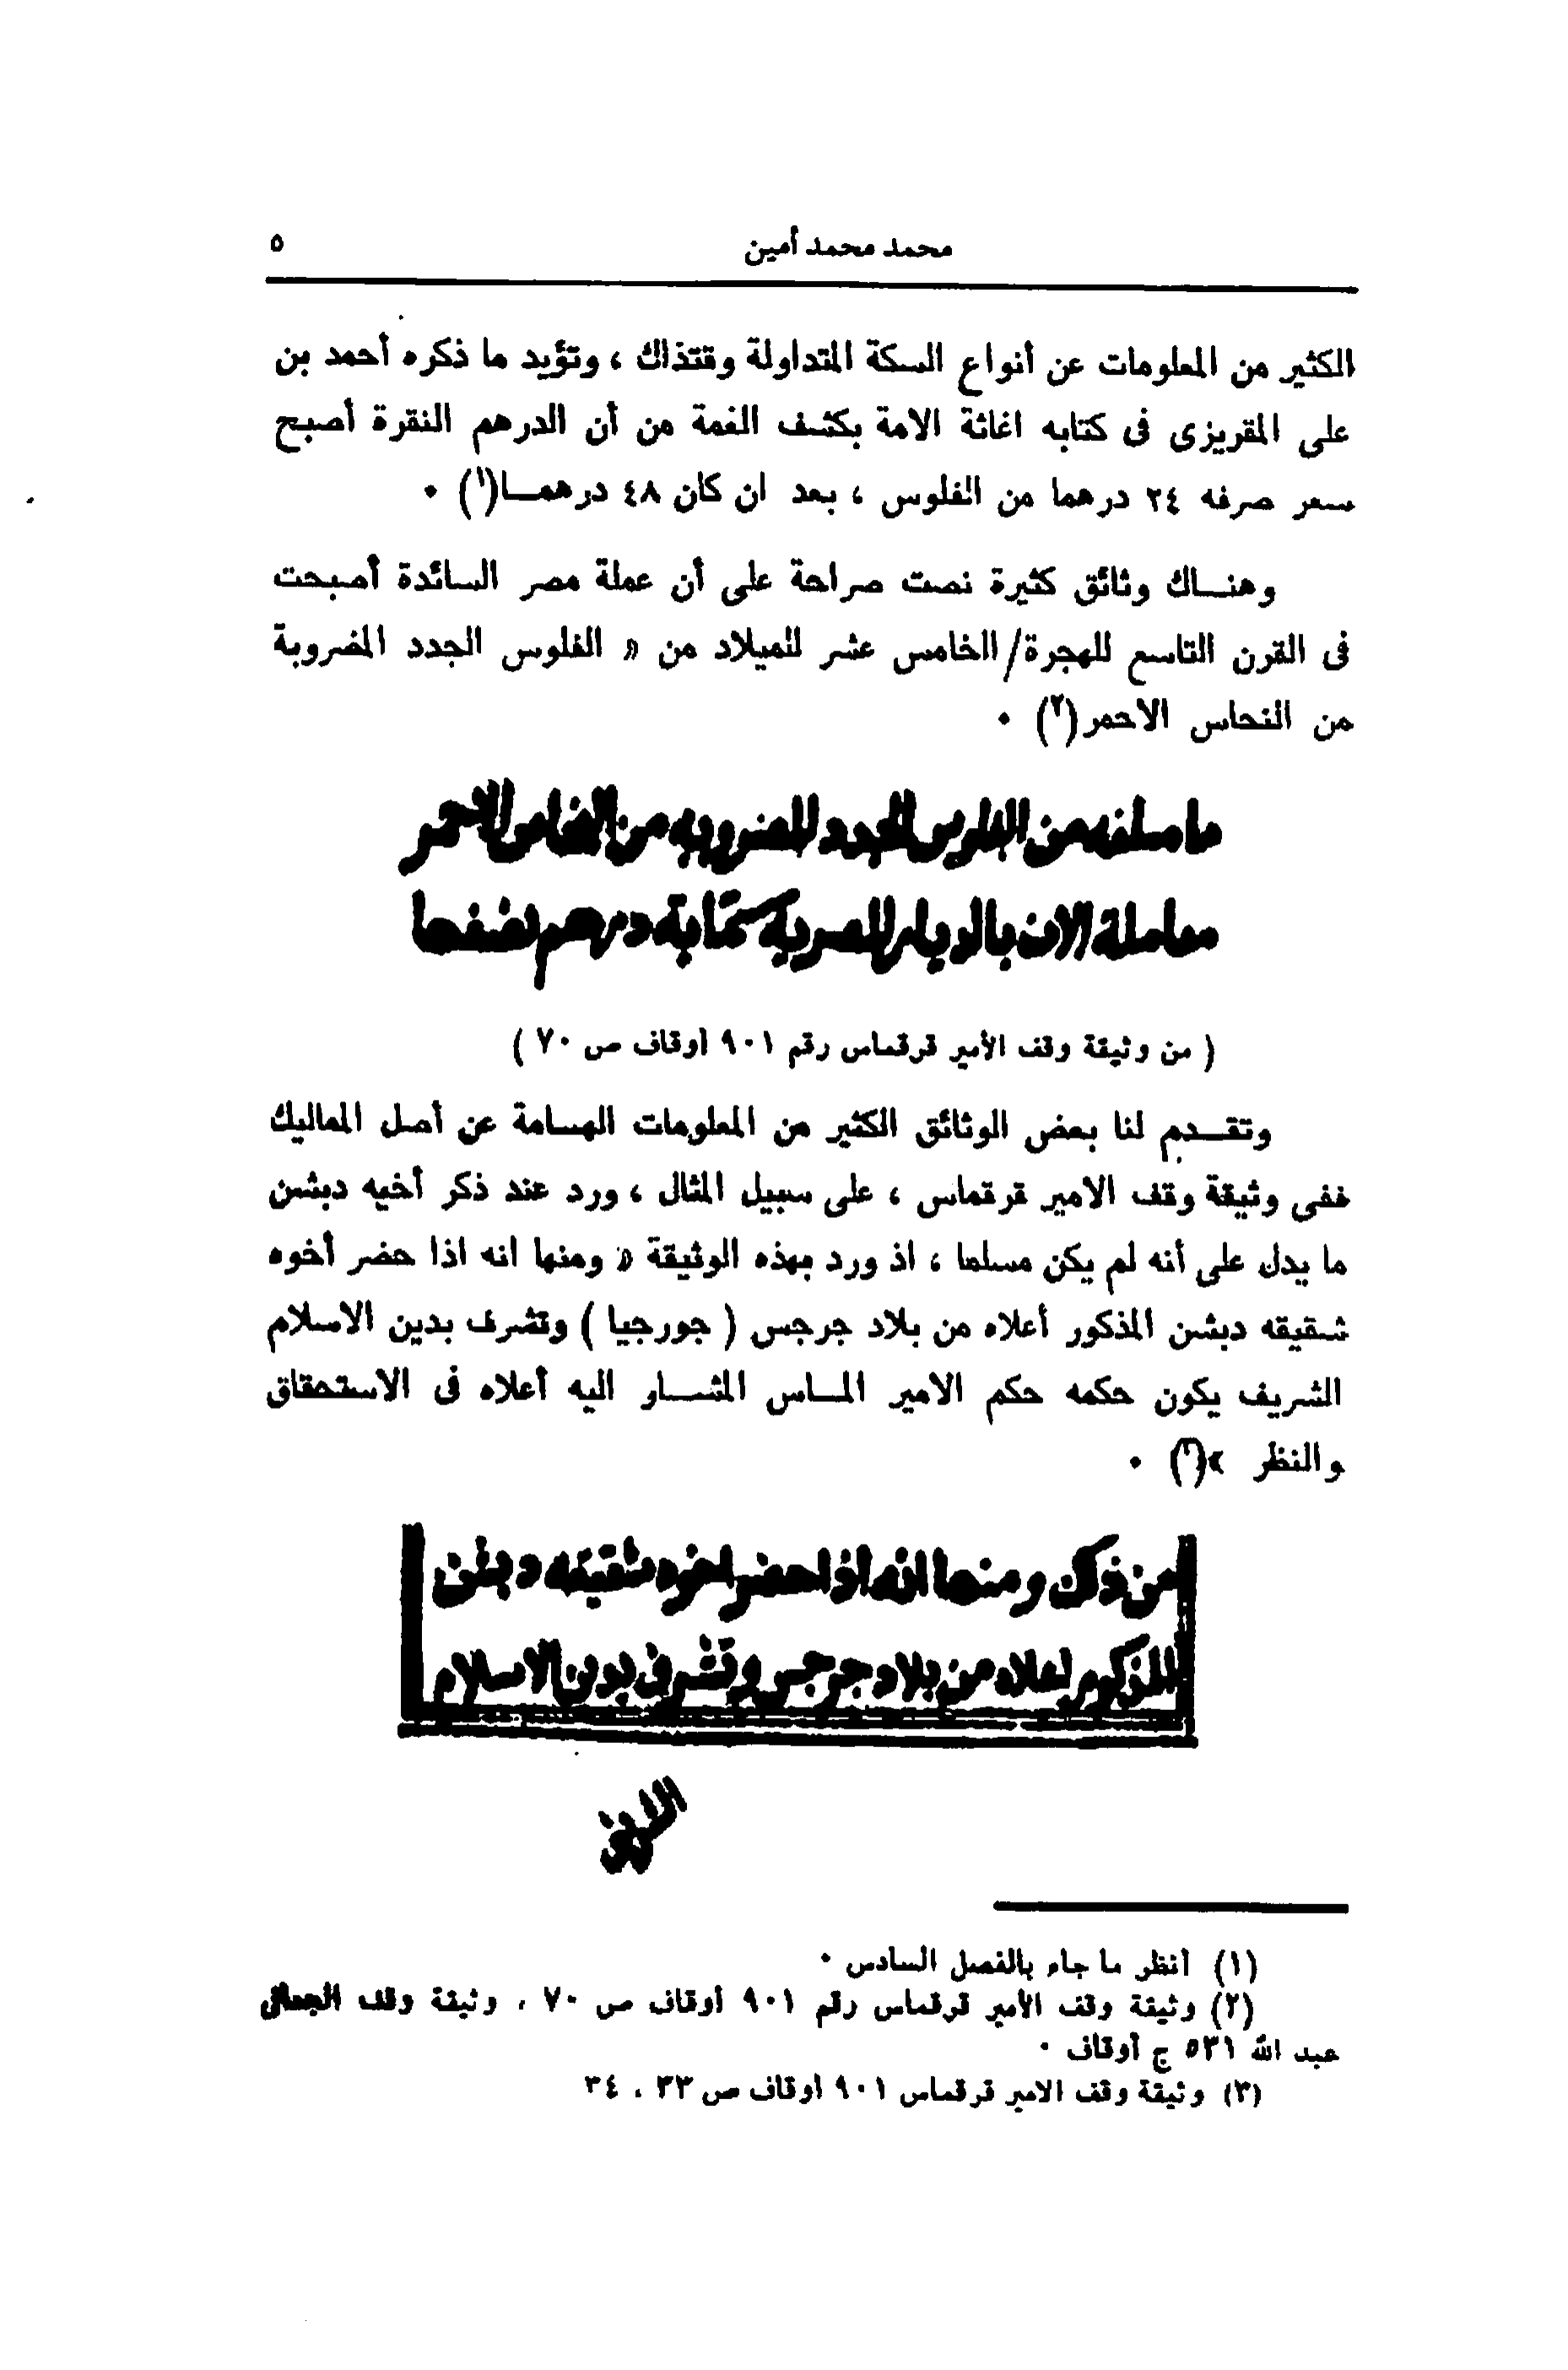 محمد محمد أمين ٥
الكثير من المعلومات عن أنواع السكة المتداولة وقتذاك ، وتؤيد ما ذكره أحمد بن
على المقريزى فى كتابه اغاثة الامة بكشف الغمة من أن الدرهم النقرة أصبح
سعر صرفه ٢٤ درهما من الفلوس ، بعد ان كان ٤٨ درهمــا(١) ٠
وهنــاك وثائق كثيرة نصت صراحة على أن عملة مصر السائدة أصبحت
فى القرن التاسع للهجرة/الخامس عشر للميلاد من « الفلوس الجدد المضروبة
من النحاس الاحمر(٢) ٠
ما مبلغه من الفلوس الجدد المضروبه من النحاس الاحمر
معاملة الان بالديار المصرية ستماية درهم نصفها
( من وثيقة وقف الأمير قرقماس رقم ٩٠١ أوقاف ص ٧٠ )
وتقــدم لنا بعض الوثائق الكثير من المعلومات الهــامة عن أصل المماليك
ففى وثيقة وقف الامير قرقماس ، على سبيل المثال ، ورد عند ذكر أخيه دبشن
ما يدل على أنه لم يكن مسلما ، اذ ورد بهذه الوثيقة « ومنها انه اذا حضر أخوه
شقيقه دبشن المذكور أعلاه من بلاد جرجس ( جورجيا ) وتشرف بدين الاسلام
الشريف يكون حكمه حكم الامير المــاس المشــار اليه أعلاه فى الاستحقاق
والنظر »(٣) ٠
من ذلك ومنها انه اذا حضر اخوه شقيقه دبشن
المذكور اعلاه من بلاد جرجس وتشرف بدين الاسلام
(١) أنظر ما جاء بالفصل السادس ٠
(٢) وثيقة وقف الأمير قرقماس رقم ٩٠١ أوقاف ص ٧٠ ، وثيقة وقف الجمالى
عبد الله ٥٣١ ج أوقاف ٠
(٣) وثيقة وقف الامير قرقماس ٩٠١ أوقاف ص ٣٣ ، ٣٤